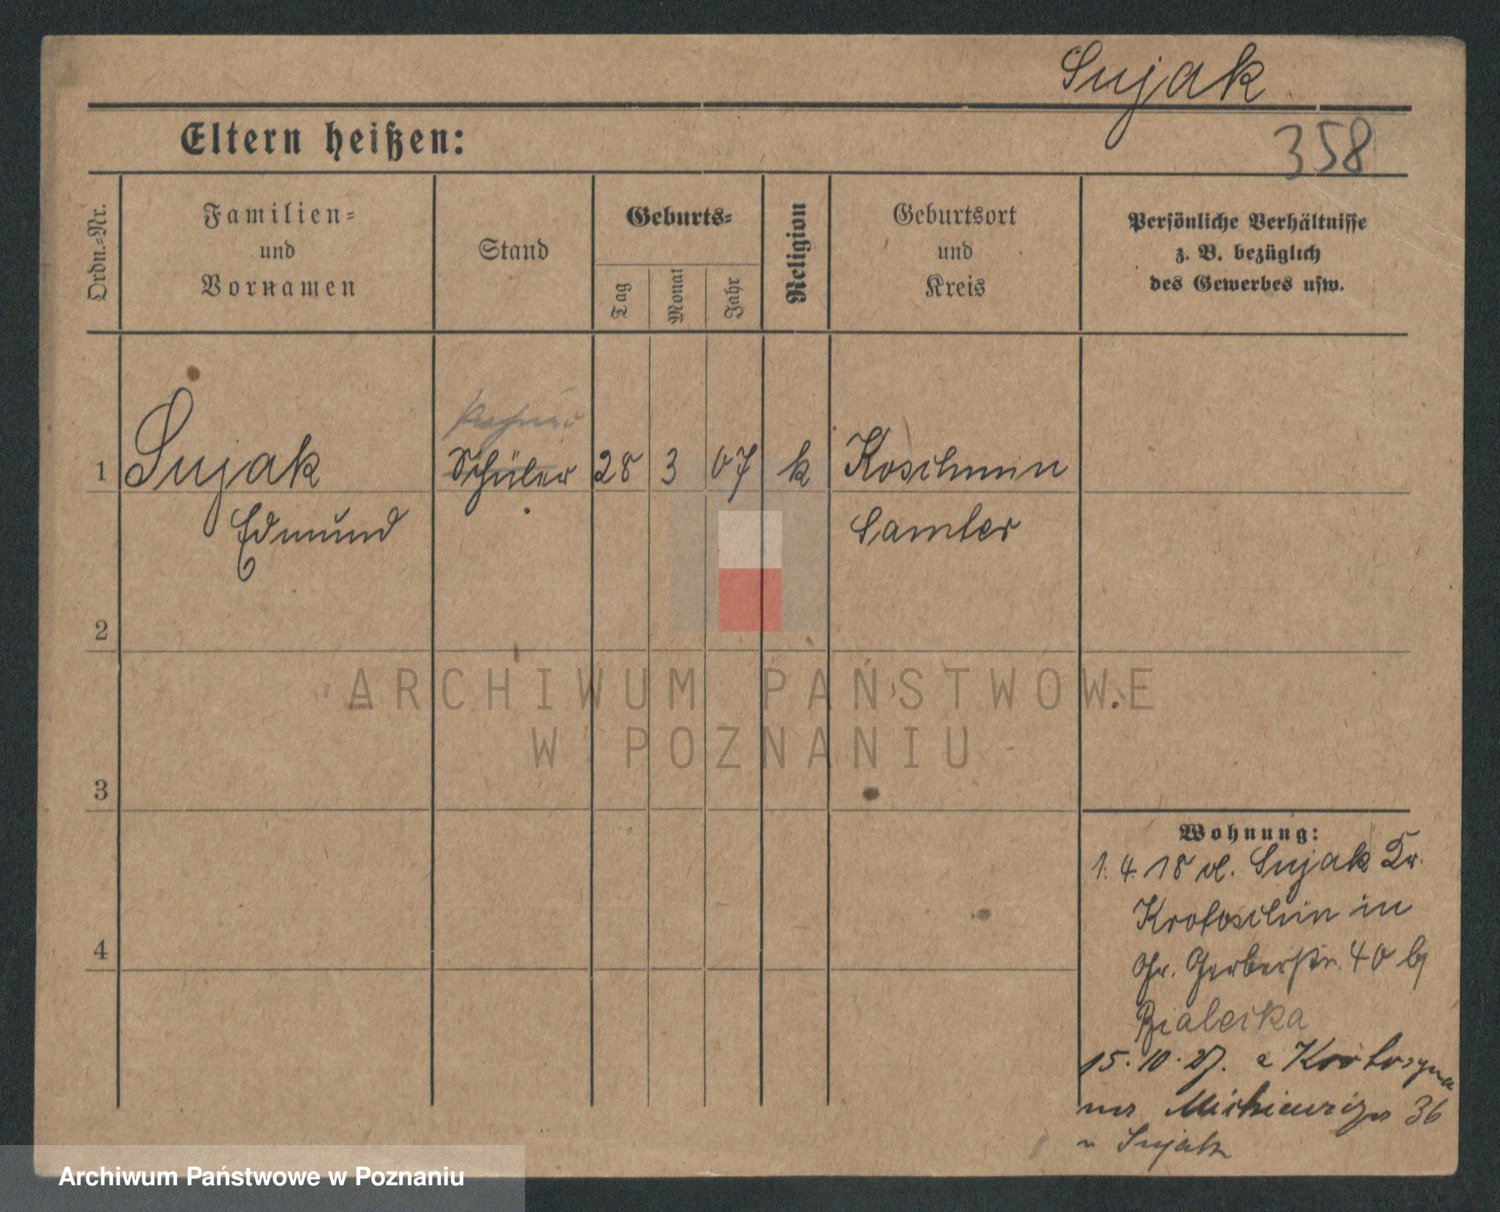 Sujak
Eltern heißen:
358
Ordn.-Nr.
Familien-
und
Vornamen
Stand
Geburts-
Tag
Monat
Jahr
Religion
Geburtsort
und
Kreis
Persönliche Verhältnisse
z. B. bezüglich
des Gewerbes usw.
1 Sujak Schüler 28 3 07 k Koschmin
Edmund Samter
2
3
4
Wohnung:
1. 4 18 Sujak
Krotoschin in
Gr. Gerberstr. 40 b/
Bialecka
15. 10. 27. Krotoszyna
na Mickiewicza 36
Sujak
ARCHIWUM PAŃSTWOWE
W POZNANIU
Archiwum Państwowe w Poznaniu